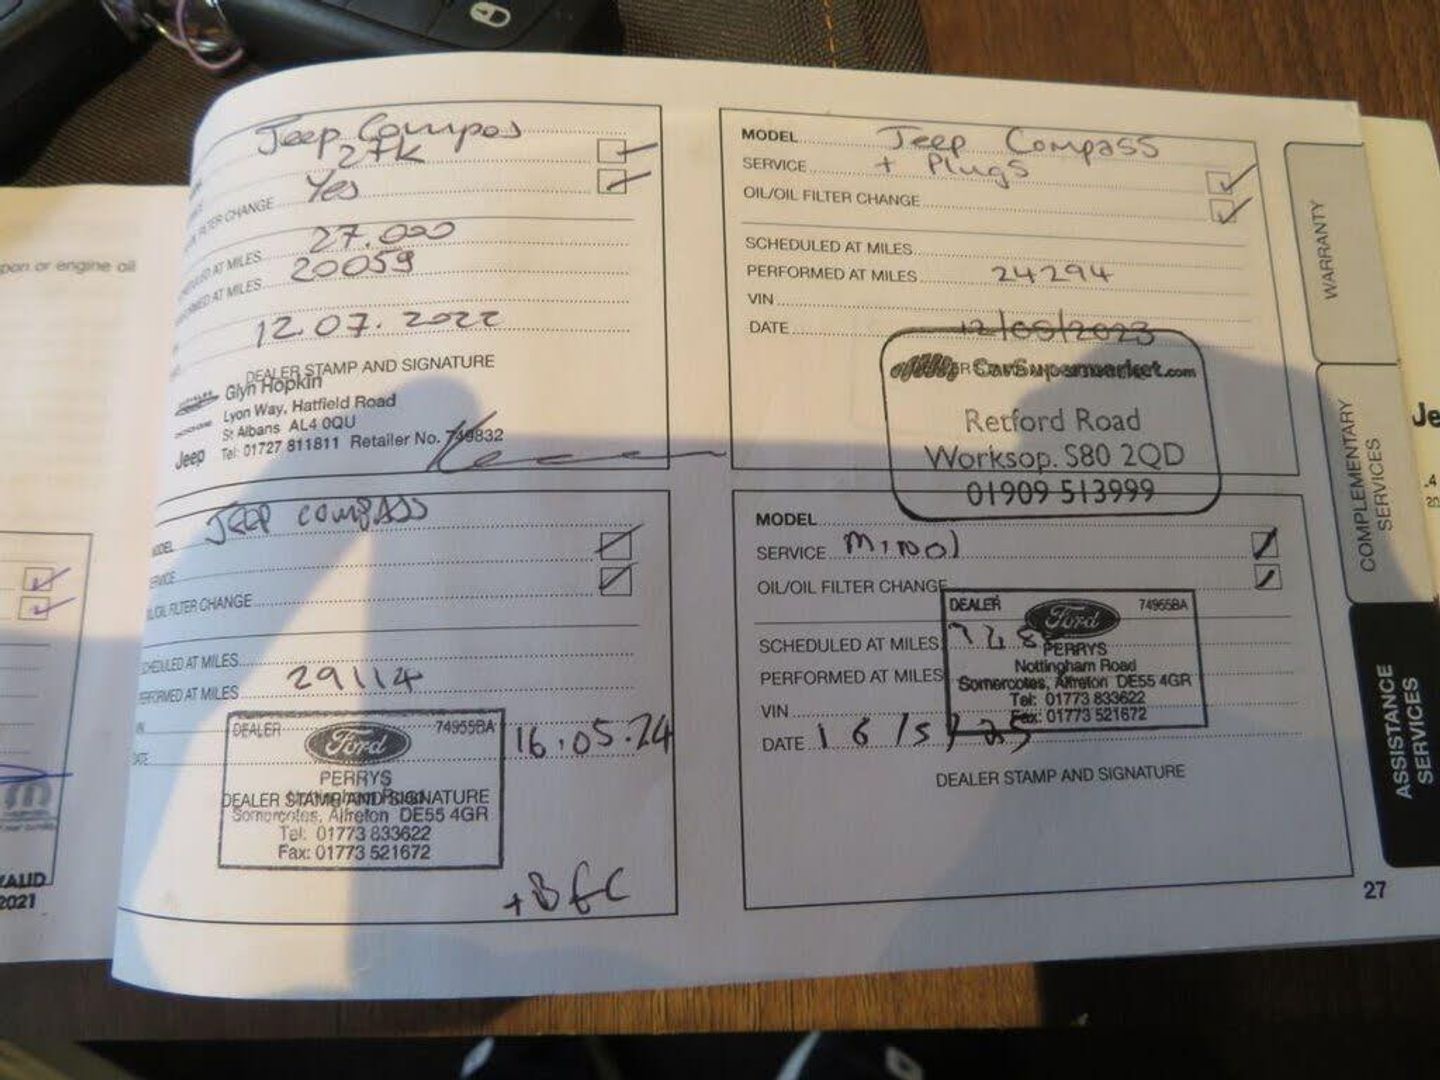 pon or engine oil
VALID
2021
Jeep Compas
27k
Yes
TER CHANGE
AT MILES 27.000
AT MILES 20059
12.07.2022
DEALER STAMP AND SIGNATURE
Glyn Hopkin
Lyon Way, Hatfield Road
St Albans AL4 0QU
Tel: 01727 811811 Retailer No. 749832
Jeep
MODEL Jeep Compass
SERVICE + Plugs
OIL/OIL FILTER CHANGE
SCHEDULED AT MILES
PERFORMED AT MILES 24294
VIN
DATE 12/05/2023
CarSupermarket.com
Retford Road
Worksop. S80 2QD
01909 513999
JEEP COMPASS
FILTER CHANGE
AT MILES
PERFORMED AT MILES 29114
16.05.24
DEALER 74955BA
Ford
PERRYS
DEALER STAMP AND SIGNATURE
Somercotes, Alfreton DE55 4GR
Tel: 01773 833622
Fax: 01773 521672
+ BFC
MODEL
SERVICE Minol
OIL/OIL FILTER CHANGE
DEALER 74955BA
Ford
SCHEDULED AT MILES
PERRYS
Nottingham Road
PERFORMED AT MILES
Somercotes, Alfreton DE55 4GR
Tel: 01773 833622
VIN
Fax: 01773 521672
DATE 16/5/25
DEALER STAMP AND SIGNATURE
27
WARRANTY
COMPLEMENTARY
SERVICES
ASSISTANCE
SERVICES
Je